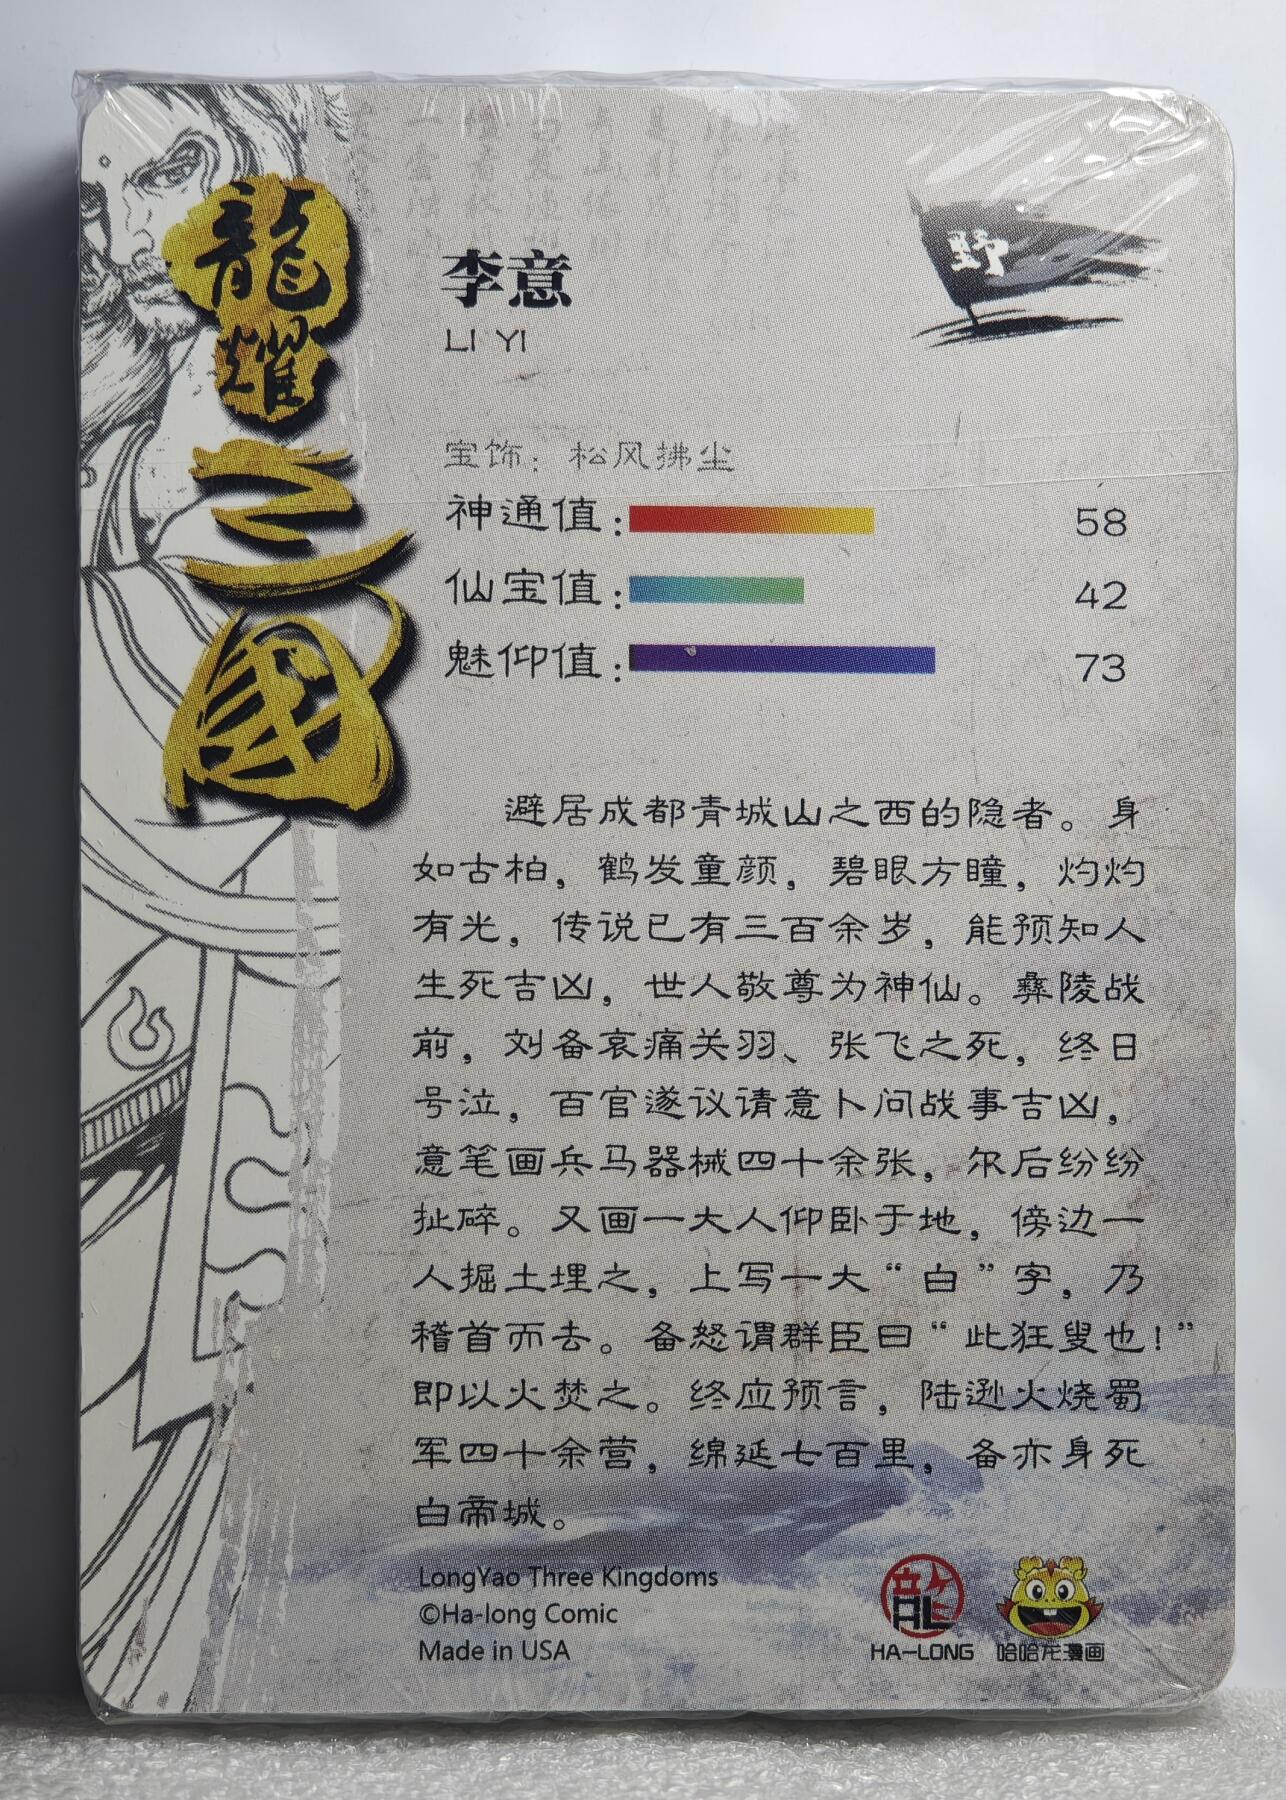 龍耀三國
李意
LI YI
野
宝饰：松风拂尘
神通值： 58
仙宝值： 42
魅仰值： 73
避居成都青城山之西的隐者。身
如古柏，鹤发童颜，碧眼方瞳，灼灼
有光，传说已有三百余岁，能预知人
生死吉凶，世人敬尊为神仙。彝陵战
前，刘备哀痛关羽、张飞之死，终日
号泣，百官遂议请意卜问战事吉凶，
意笔画兵马器械四十余张，尔后纷纷
扯碎。又画一大人仰卧于地，傍边一
人掘土埋之，上写一大“白”字，乃
稽首而去。备怒谓群臣曰“此狂叟也！”
即以火焚之。终应预言，陆逊火烧蜀
军四十余营，绵延七百里，备亦身死
白帝城。
LongYao Three Kingdoms
©Ha-long Comic
Made in USA
龍
HA-LONG
哈哈龙漫画